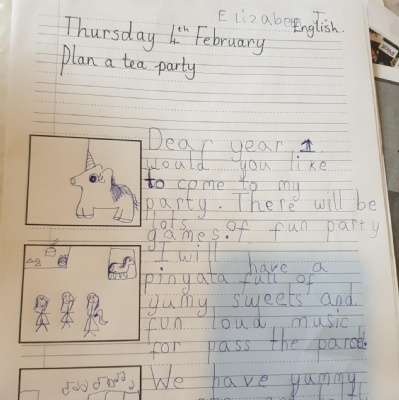 Elizabeth T
English.
Thursday 4th February
Plan a tea party
Dear year 1
would you like
to come to my
party. There will be
lots of fun party
games.
I will have a
pinyata full of
yumy sweets and
fun loud music
for pass the parcel.
We have yummy